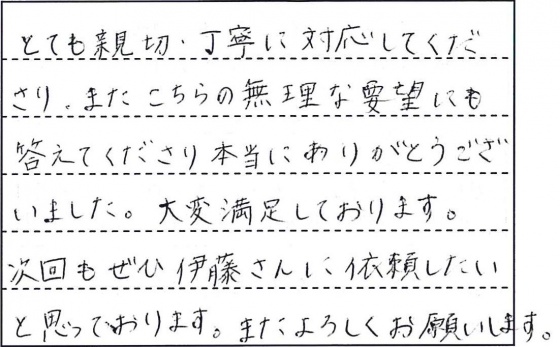 とても親切・丁寧に対応してくだ
さり、またこちらの無理な要望にも
答えてくださり本当にありがとうござ
いました。大変満足しております。
次回もぜひ伊藤さんに依頼したい
と思っております。またよろしくお願いします。